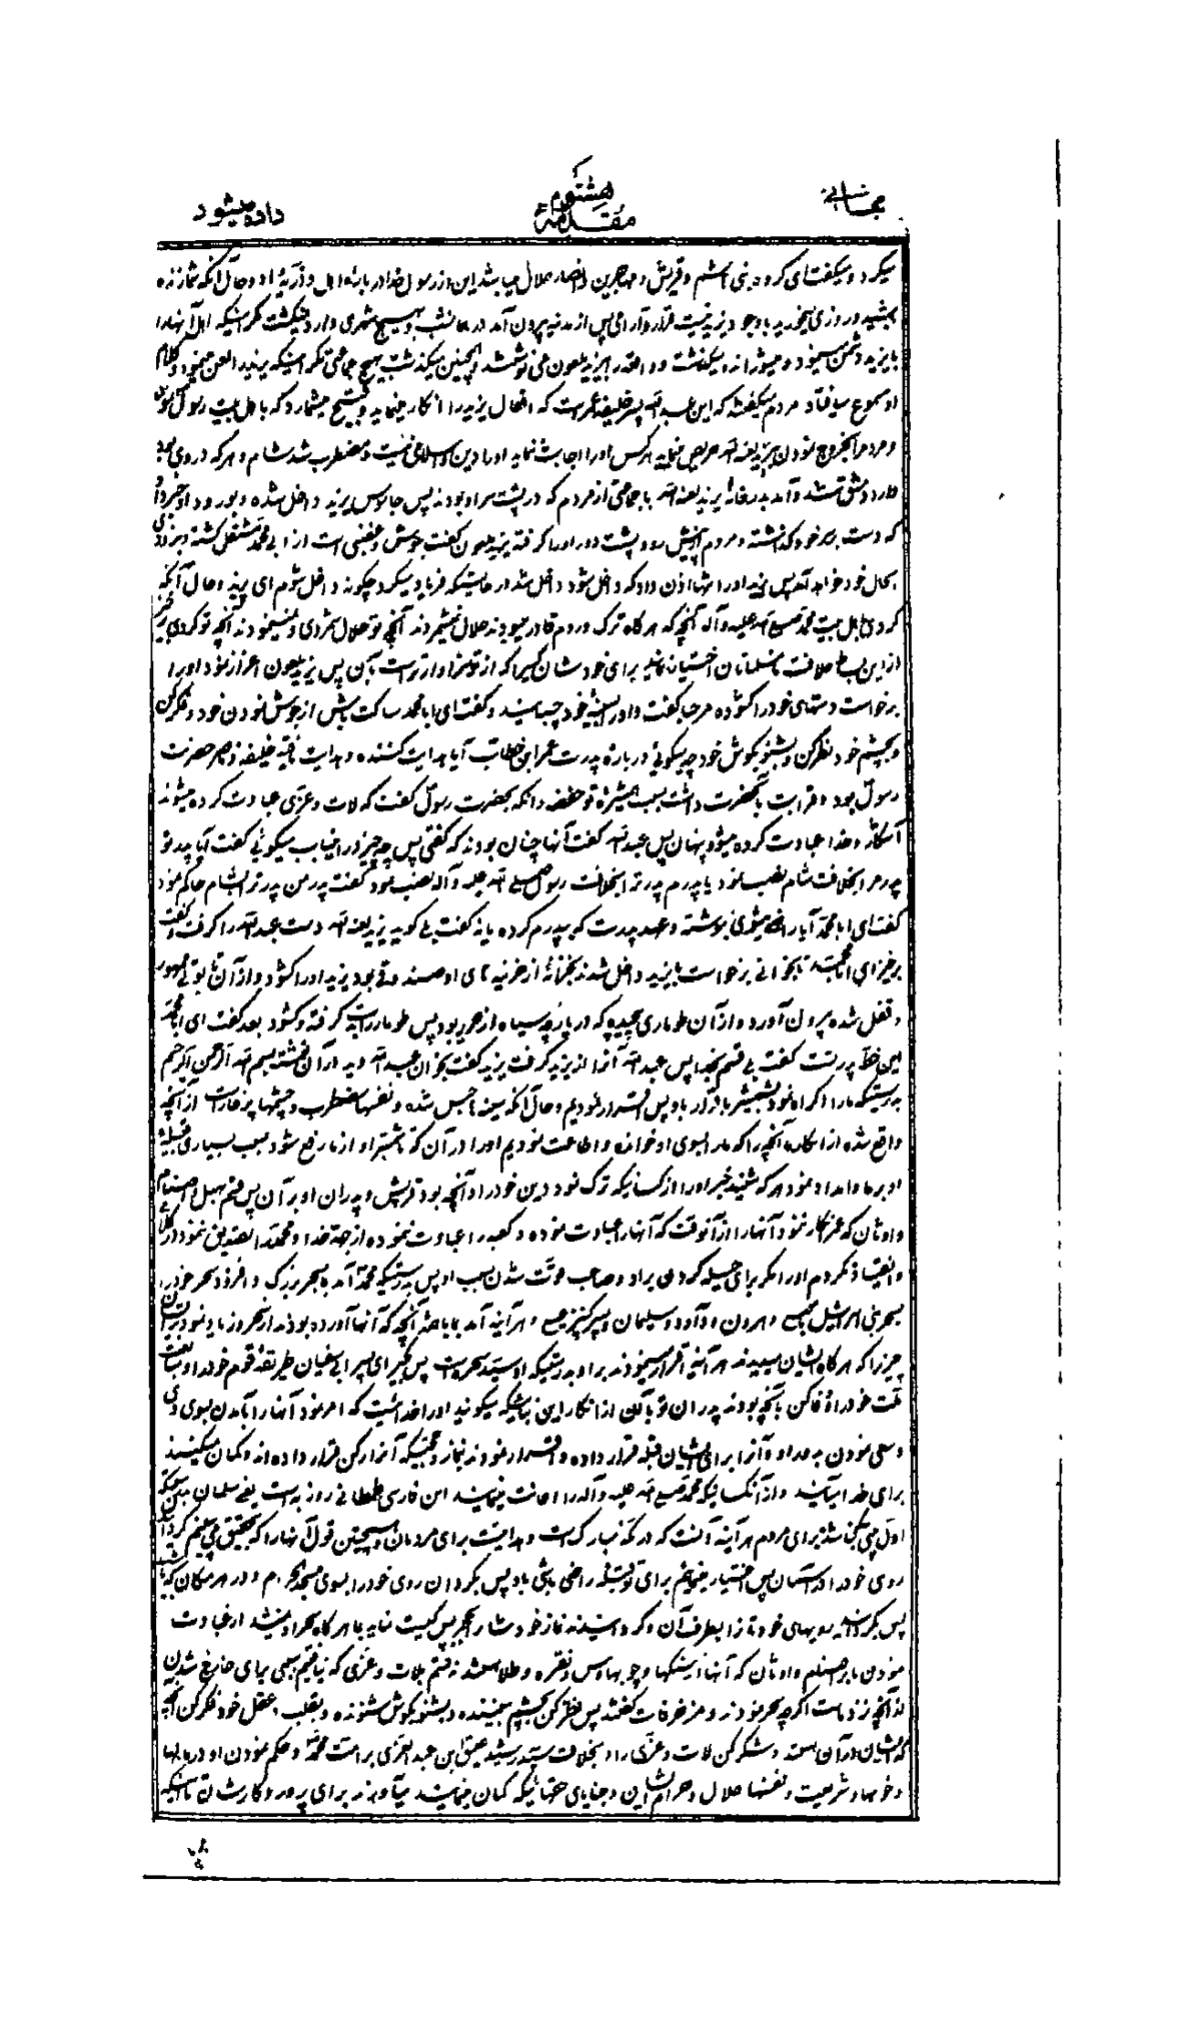 هشتم
مقدمه
داده میشود
میکرد و میکفت ای کروه بنی هاشم و قریش و مهاجرین و انصار حلال میباشد این از رسول خدا در باره اهل و ذریه او و حال آنکه شما زنده
و روزی میخورید با وجود یزید نیست قرار و آرامی پس از مدینه بیرون آمد در بهیچ شهری وارد نمیکشت مکر اینکه اهل آنها را
با یزید دشمن مینمود و میکفت و و همچنین میکذشت بهیچ جماعتی مکر اینکه یزید را لعن مینمود و کلام
او مسموع میافتاد مردم میکفتند که این عبد الله پسر خلیفه عمر است که افعال یزید را انکار مینماید و قبیح میشمارد که با اهل بیت رسول نموده
و مردم را بخروج نمودن بر یزید لعنه الله حریص مینماید هر کس او را اجابت ننماید او را دین و اسلامی نیست و مضطرب شد شام و هر که در وی بود
وارد دمشق شد و آمد بدر خانه یزید لعنه الله با جماعتی از مردم که در پشت سر او بودند پس جاسوس یزید داخل شده و بورود او خبر داد
که دست بر سر خود کذاشته و مردم از پیش رو و پشت دور او را کرفته یزید ملعون کفت جوش و غضبی است از ابی محمد
بحال خود خواهد آمد پس یزید او را تنها اذن داد که داخل شود داخل شد در حالتیکه فریاد میکرد چکونه داخل شوم ای یزید و حال آنکه
کردی باهل بیت محمد صلی الله علیه و آله آنچه که هر کاه ترک و روم قادر میبودند حلال نمیشمردند آنچه تو حلال شمردی و نمینمودند آنچه تو کردی
از این بساط خلافت تا مسلمانان اختیار نمایند برای خودشان کسیرا که از تو سزاوارتر است بآن پس یزید ملعون اعزاز نمود او را
برخاست دستهای خود را کشوده مرحبا کفت و او را بسینه خود چسبانید و کفت ای ابا محمد ساکت باش از جوش نمودن خود و فکر کن
و بچشم خود نظر کن و بشنو بکوش خود چه میکوئی در باره پدرت عمر ابن خطاب آیا هدایت کننده و هدایت یافته خلیفه و ناصر حضرت
رسول بود و قرابت بآنحضرت داشت بسبب همشیره تو حفصه و آنکه بحضرت رسول کفت که لات و عزی عبادت کرده میشوند
آشکارا و خدا عبادت کرده میشود پنهان پس عبد الله کفت آنها چنان بودند که کفتی پس چه چیز در اینباب میکوئی کفت آیا پدر تو
پدر مرا بخلافت شام نصب نمود یا پدرم پدر ترا بخلافت رسول صلی الله علیه و آله نصب نمود کفت پدر من پدر ترا بشام حاکم نمود
کفت ای ابا محمد آیا راضی میشوی بنوشته و عهد پدرت که بپدرم کرده یا نه کفت بلی کوید یزید لعنه الله دست عبد الله را کرفت و کفت
برخیز ای ابا محمد تا بخوانی برخاست با یزید داخل شدند بخزانه از خزینه های او صندوقی بود یزید او را کشود و از آن تابوتی ممهور
و قفل شده بیرون آورد و از آن طوماری پیچیده که در پارچه سیاه از حریر بود پس طومار را بدست کرفته و کشود بعد کفت ای ابا محمد
این خط پدر تست کفت بلی قسم بخدا پس عبد الله آنرا از یزید کرفت یزید کفت بخوان عبد الله دید در آن نوشته بسم الله الرحمن الرحیم
بدرستیکه ما را اکراه نمود بشمشیر باقرار باو پس اقرار نمودیم و حال آنکه سینه ها حبس شده و نفسها مضطرب و چشمها از آنچه
واقع شده از انکار ما آنچه را که ما را بسوی او خواند و اطاعت نمودیم او را در آن که تا شمشیر او از ما رفع شود بسبب بسیاری قبیله
او بر ما و امداد نمود هر که شنید خبر او را از کسانیکه ترک نمود دین خود را و آنچه بود قریش و پدران او بر آن پس قسم بهبل و اصنام
و اوثان که عمر انکار ننمود آنها را از آنوقت که آنها را عبادت نموده و کعبه را عبادت ننموده از جهة خدا و محمد را تصدیق ننموده
و انقیاد نکردم او را مکر برای حیله کردن بر او و صاحب قوت شدن بسبب او پس بدرستیکه محمد آمد بما بسحر بزرک و افزود سحر خود را
بسحر بنی اسرائیل موسی و هرون و داود و سلیمان و پسر کنیز عیسی و هر آینه آمد بما باضافه آنچه که آنها آورده بودند از سحر و زیاد نمود بر ایشان
چیزی را که هر کاه ایشان میدیدند هر آینه اقرار مینمودند بر او بدرستیکه او سید سحره است پس بکیر ای پسر ابی سفیان طریقه قوم خود را و متابعت
ملت خود را و وفا کن بآنچه بودند پدران تو بآن از انکار این بنائیکه میکویند او را خدائیست که امر نمود آنها را بآمدن بسوی وی
و سعی نمودن بدور او و آنرا برای ایشان قبله قرار داده و اقرار نمودند بنماز و حجیکه آنرا رکن قرار داده اند و کمان میکنند
برای خدا میآیند و از آنکسانیکه محمد صلی الله علیه و آله را اعانت مینمایند این فارسی طمطمانی روزبه است یعنی سلمان
اول بیتی که بنا شد برای مردم هر آینه آنست که در مکه مبارک است و هدایتست برای مردمان و همچنین قول آنها را که بتحقیق می بینیم کردانیدن
روی خود را در آسمان پس اختیار مینمائیم برای تو قبله که راضی باشی باو پس بکردان روی خود را بسوی مسجد الحرام و در هر مکان که باشید
پس بکردانید رویهای خودتان را بطرف آن و کردانیدند نماز خودشانرا بحجر پس کیست نماید بما هر کاه سحر او نمیشد از عبادت
نمودن ما بر اصنام و اوثان که آنها از سنکها و چوبها و مس و نقره و طلا هستند نه قسم بلات و عزی که نیافتیم سببی برای خارج شدن
از آنچه نزد ماست اکرچه سحر نمودند و مزخرفات کفتند پس نظر کن بچشم بیننده و بشنو بکوش شنونده و بقلب و عقل خود فکر کن آنچه
که ایشان در آن هستند و شکر کن لات و عزی را و بخلافت سید رشید عتیق ابن عبد العزی بر امت محمد و حکم نمودن او در مالها
و خونها و شریعت و نفسها و حلال و حرام ایشان و جنایای حقهائیکه کمان مینمایند میآورند برای پروردکارشان تا اینکه